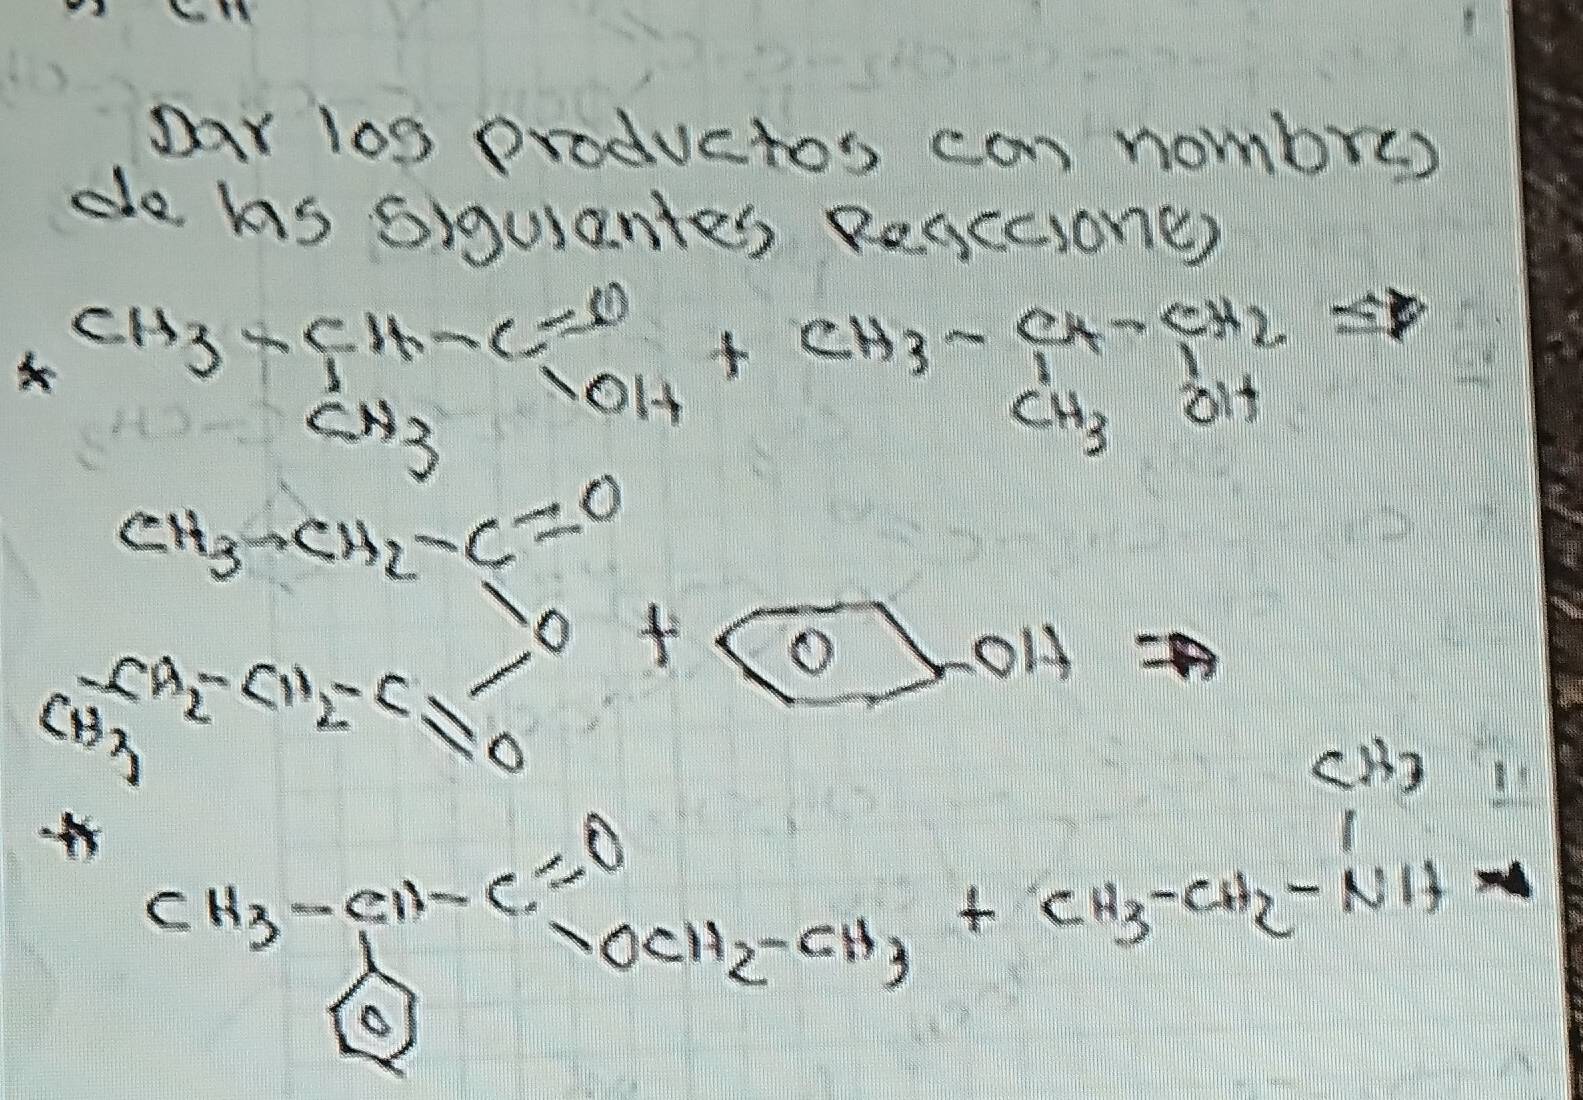 Dar los productos con nombres
de las siguientes Reacciones
* CH3-CH-C=O + CH3-CH-CH2 ⇒
CH3 \OH CH3 OH
CH3-CH2-C=O
O + O -OH ⇒
CH3-CH2-CH2-C=O
* CH3
CH3-CH-C=O + CH3-CH2-NH →
\OCH2-CH3